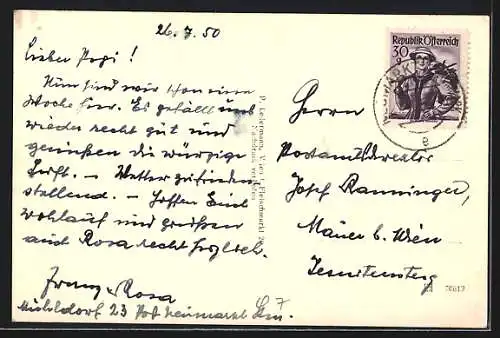 26.7.50
Lieber Pepi!
Nun sind wir schon eine
Woche hier. Es gefällt uns
wieder recht gut und
genießen die würzige
Luft. – Wetter zufrieden
stellend. – Hoffen Euch
wohlauf und grüßen
auch Rosa recht herzlich.
Franz & Rosa
Mühldorf 23 Post Neumarkt
P. Ledermann, Wien I, Fleischmarkt
Republik Österreich
30 g
NEUMARKT
Herrn
Postamtsdirektor
Josef Ranninger
Mauer b. Wien
Jesuitensteig